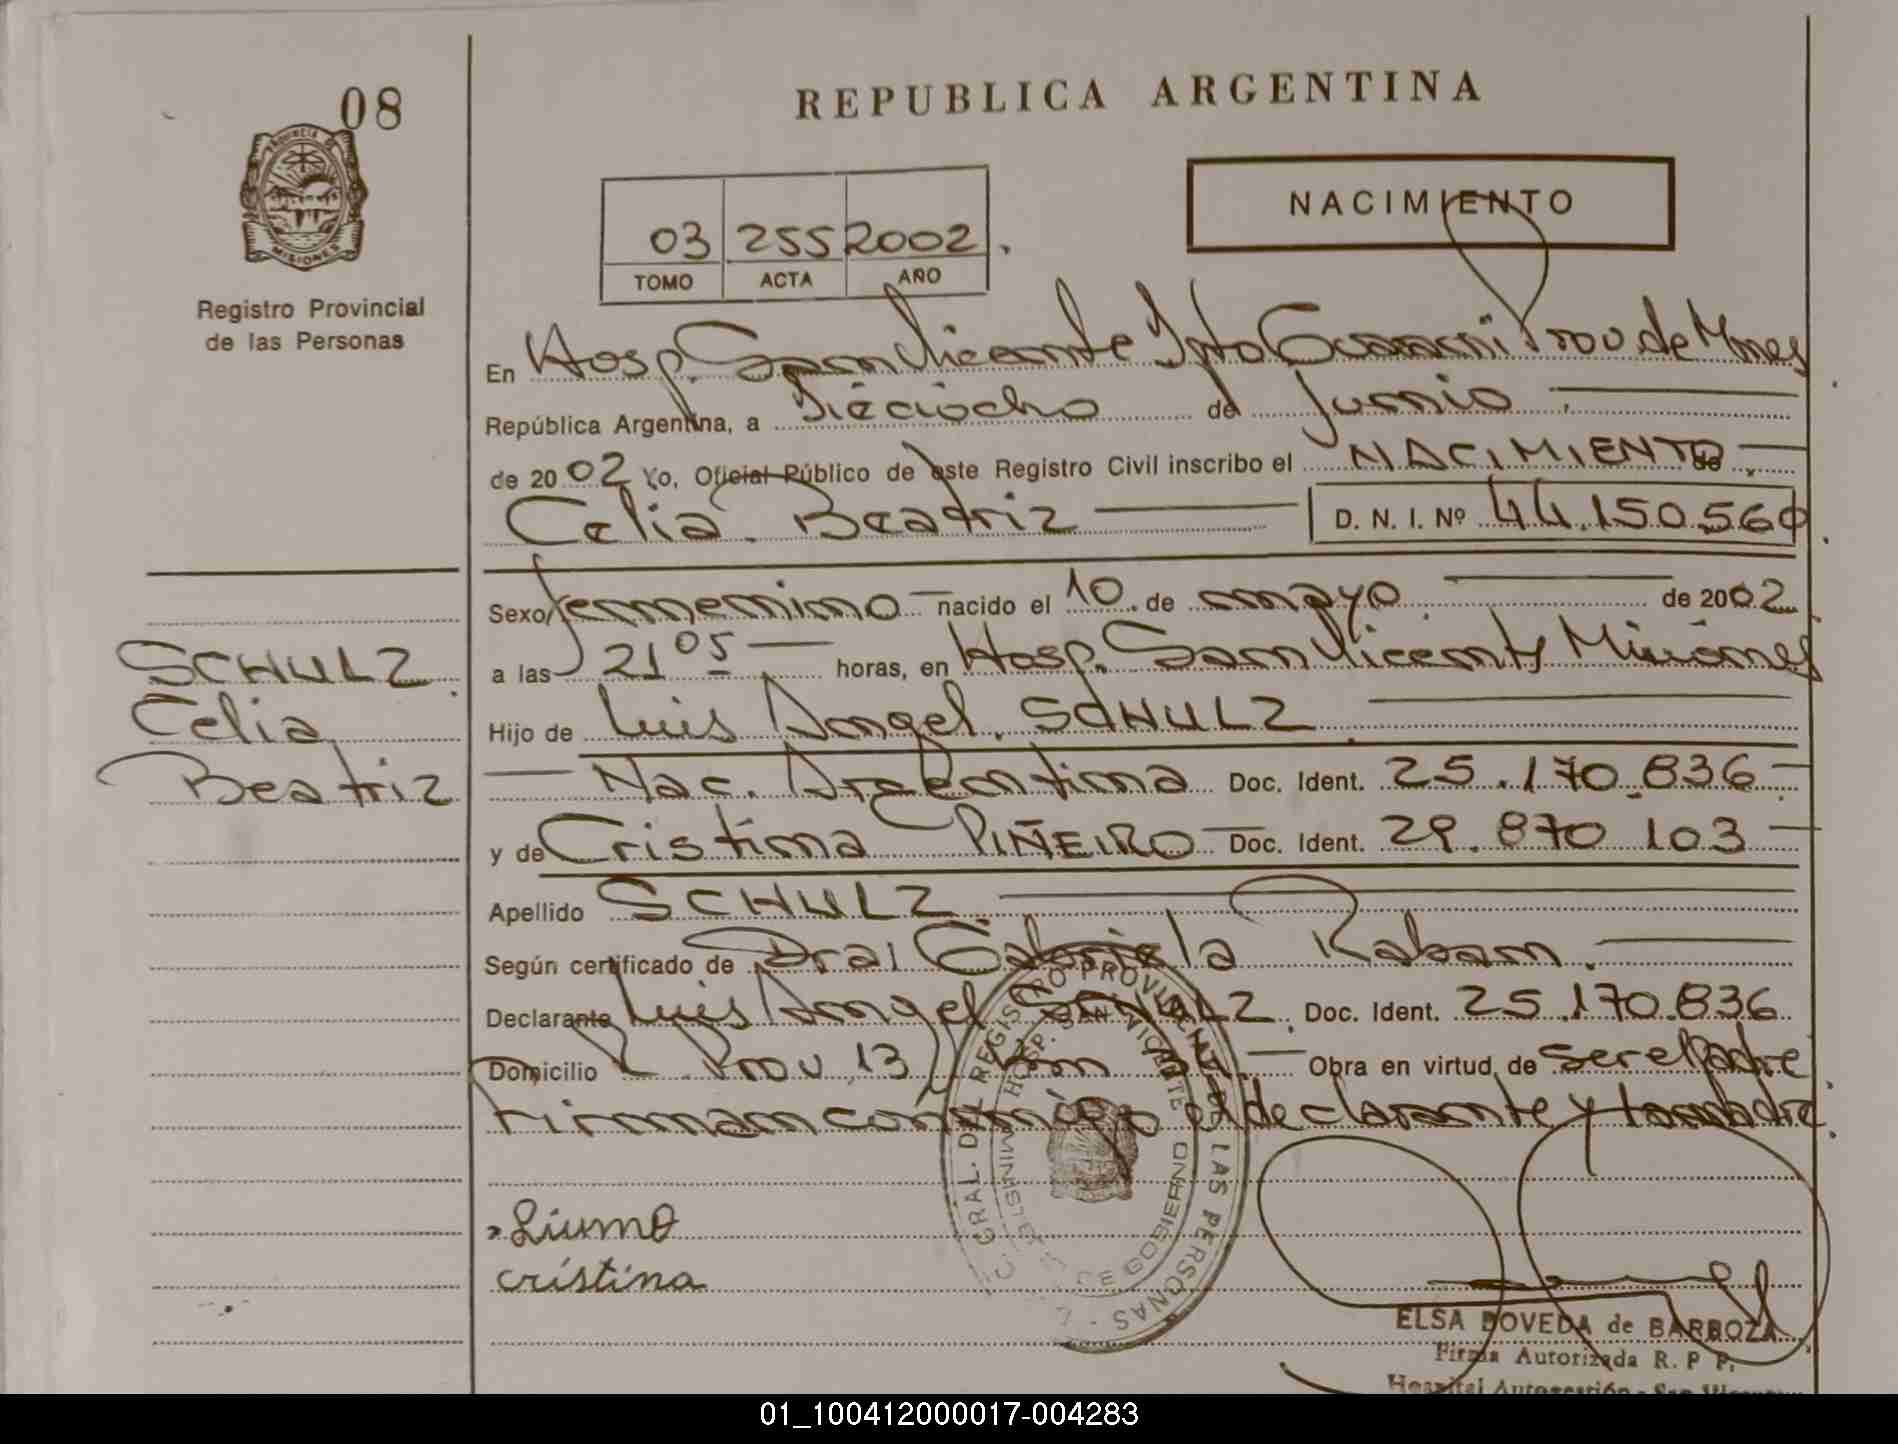 08
REPUBLICA ARGENTINA
PROVINCIA DE
MISIONES
Registro Provincial
de las Personas
03 255 2002
TOMO ACTA AÑO
NACIMIENTO
En Hosp. San Vicente Dpto Guarani Prov de Mnes
República Argentina, a Dieciocho de Junio
de 2002 Yo, Oficial Público de este Registro Civil inscribo el NACIMIENTO de
Celia Beatriz D. N. I. Nº 44.150.560
Sexo femenino nacido el 10 de mayo de 2002
a las 21 05 horas, en Hosp. San Vicente Misiones
Hijo de Luis Angel SCHULZ
Nac. Argentina Doc. Ident. 25.170.836
y de Cristina PIÑEIRO Doc. Ident. 29.870 103
Apellido SCHULZ
Según certificado de Dra. Gabriela Raban
Declarante Luis Angel SCHULZ Doc. Ident. 25.170.836
Domicilio Prov 13 Km Obra en virtud de ser el Padre
Firman conmigo el declarante y la madre
SCHULZ
Celia
Beatriz
cristina
GRAL. DEL REGISTRO PROVINCIAL DE LAS PERSONAS
HOSP. SAN VICENTE
MINISTERIO DE GOBIERNO
ELSA DOVEDA de BARBOZA
Firma Autorizada R. P P.
Hospital Autogestión - San Vicente
01_100412000017-004283